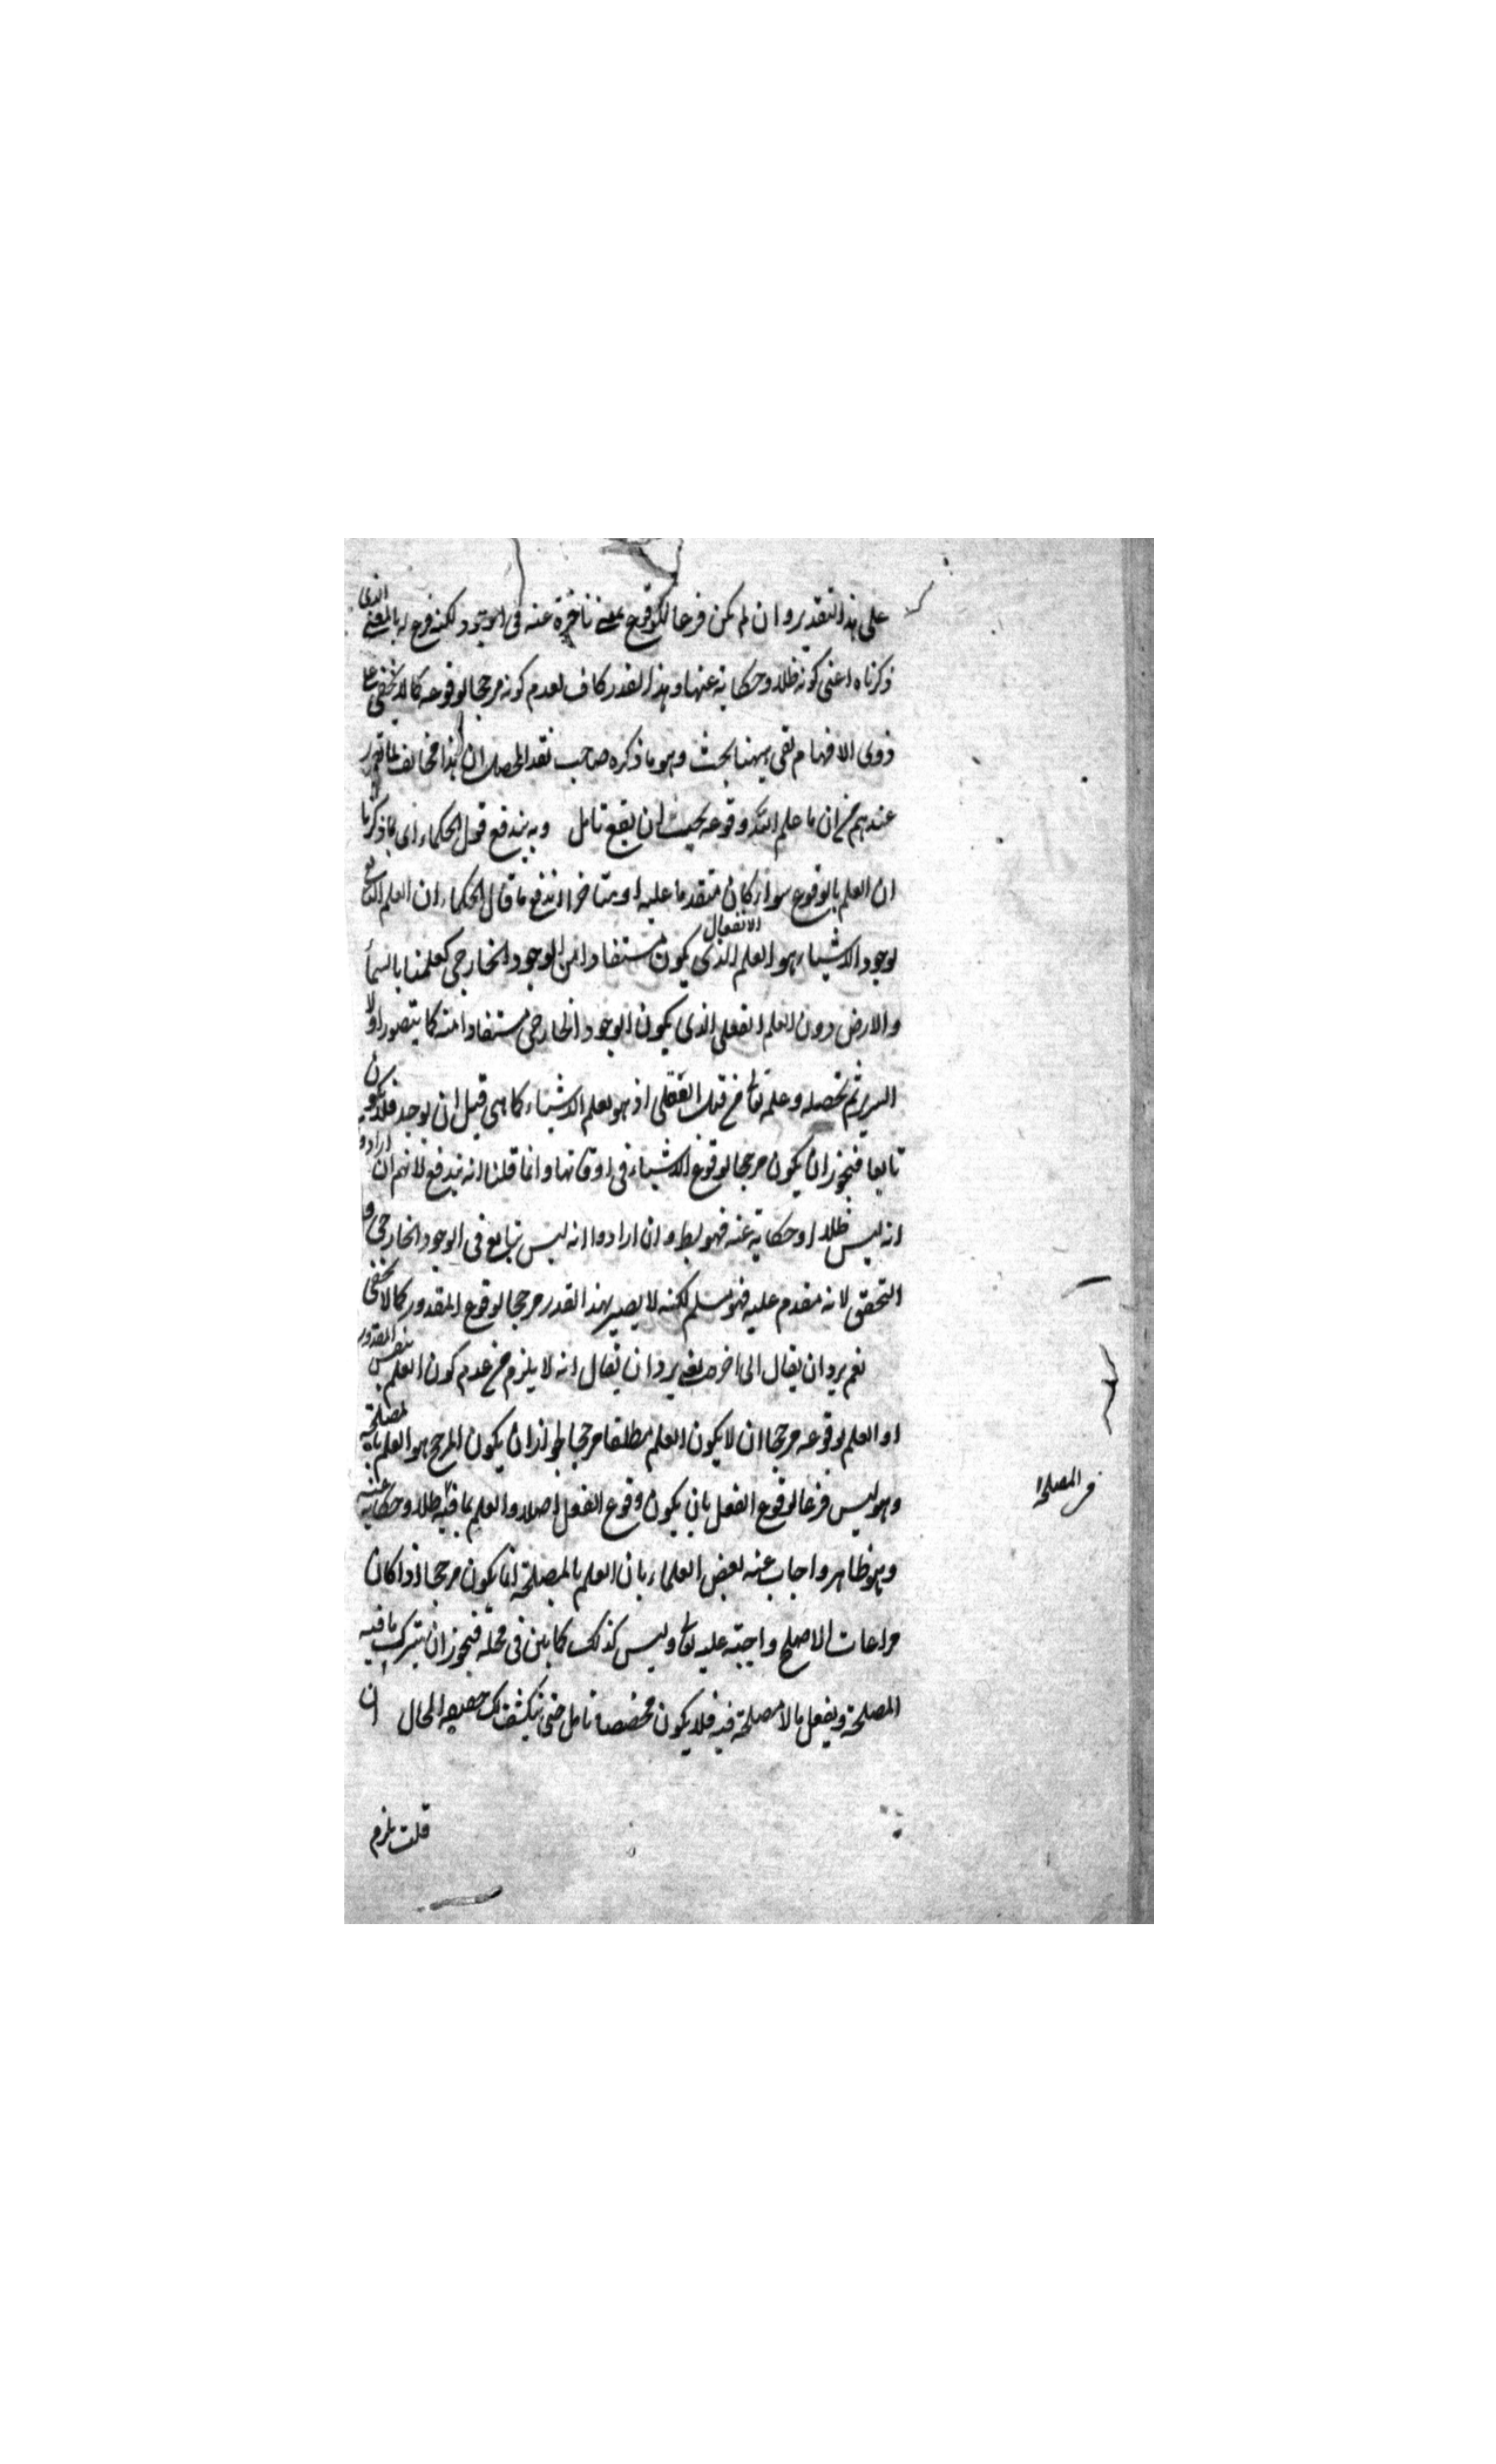 على هذا التقدير وان لم يكن فرعا لوقوع بمعنى تأخره عنه فى الوجود لكنه فرع له بالمعنى الذى
ذكرناه اعنى كونه ظلا وحكاية عنها وهذا القدر كاف لعدم كونه مرجحا لوقوعه كما لا يخفى على
ذوى الافهام بقى ههنا بحث وهو ما ذكره صاحب نقد المحصل ان هذا مخالف لما تقرر
عندهم من ان ما علم الله وقوعه يجب ان يقع تامل وبه يندفع قول الحكماء اى بما ذكرنا
ان العلم بالوقوع سواء كان متقدما عليه او متأخرا اندفع ما قال الحكماء ان العلم التابع
لوجود الاشياء هو العلم الانفعالى الذى يكون مستفادا من الوجود الخارجى كعلمنا بالسماء
والارض دون العلم الفعلى الذى يكون الوجود الخارجى مستفادا منه كما يتصور اولا
السرير ثم تحصله وعلمه تعالى من قبيل الفعلى اذ هو يعلم الاشياء كما هى قبل ان يوجد فلا يكون
تابعا فيجوز ان يكون مرجحا لوقوع الاشياء فى اوقاتها وانما قلنا انه يندفع لانهم ان ارادوا
انه ليس ظلا او حكاية عنه فهو بط وان ارادوا انه ليس بتابع فى الوجود الخارجى و
التحقق لانه مقدم عليه فهو مسلم لكنه لا يصير بهذا القدر مرجحا لوقوع المقدور كما لا يخفى
نعم يرد ان يقال الى اخره يعنى يرد ان يقال انه لا يلزم من عدم كون العلم بنفس المقدور
او العلم بوقوعه مرجحا ان لا يكون العلم مطلقا مرجحا لجواز ان يكون المرجح هو العلم بما فيه مصلحة
وهو ليس فرعا لوقوع الفعل بان يكون وقوع الفعل اصلا والعلم بما فيه ظلا وحكاية عنه
من المصلحة
وهو ظاهر واجاب عنه بعض العلماء بان العلم بالمصلحة انما يكون مرجحا اذا كان
مراعات الاصلح واجبة عليه تعالى وليس كذلك كما بين فى محله فيجوز ان يترك ما فيه
المصلحة ويفعل ما لا مصلحة فيه فلا يكون مخصصا تامل حتى ينكشف لك حقيقة الحال ان
قلت يلزم